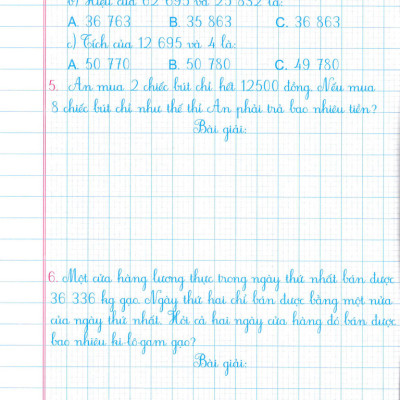 b) Hiệu của 62 695 và 25 832 là:
A. 36 763 B. 35 863 C. 36 863
c) Tích của 12 695 và 4 là:
A. 50 770 B. 50 780 C. 49 780
5. An mua 2 chiếc bút chì hết 12500 đồng. Nếu mua
8 chiếc bút chì như thế thì An phải trả bao nhiêu tiền?
Bài giải:
6. Một cửa hàng lương thực trong ngày thứ nhất bán được
36 336 kg gạo. Ngày thứ hai chỉ bán được bằng một nửa
của ngày thứ nhất. Hỏi cả hai ngày cửa hàng đó bán được
bao nhiêu ki-lô-gam gạo?
Bài giải: